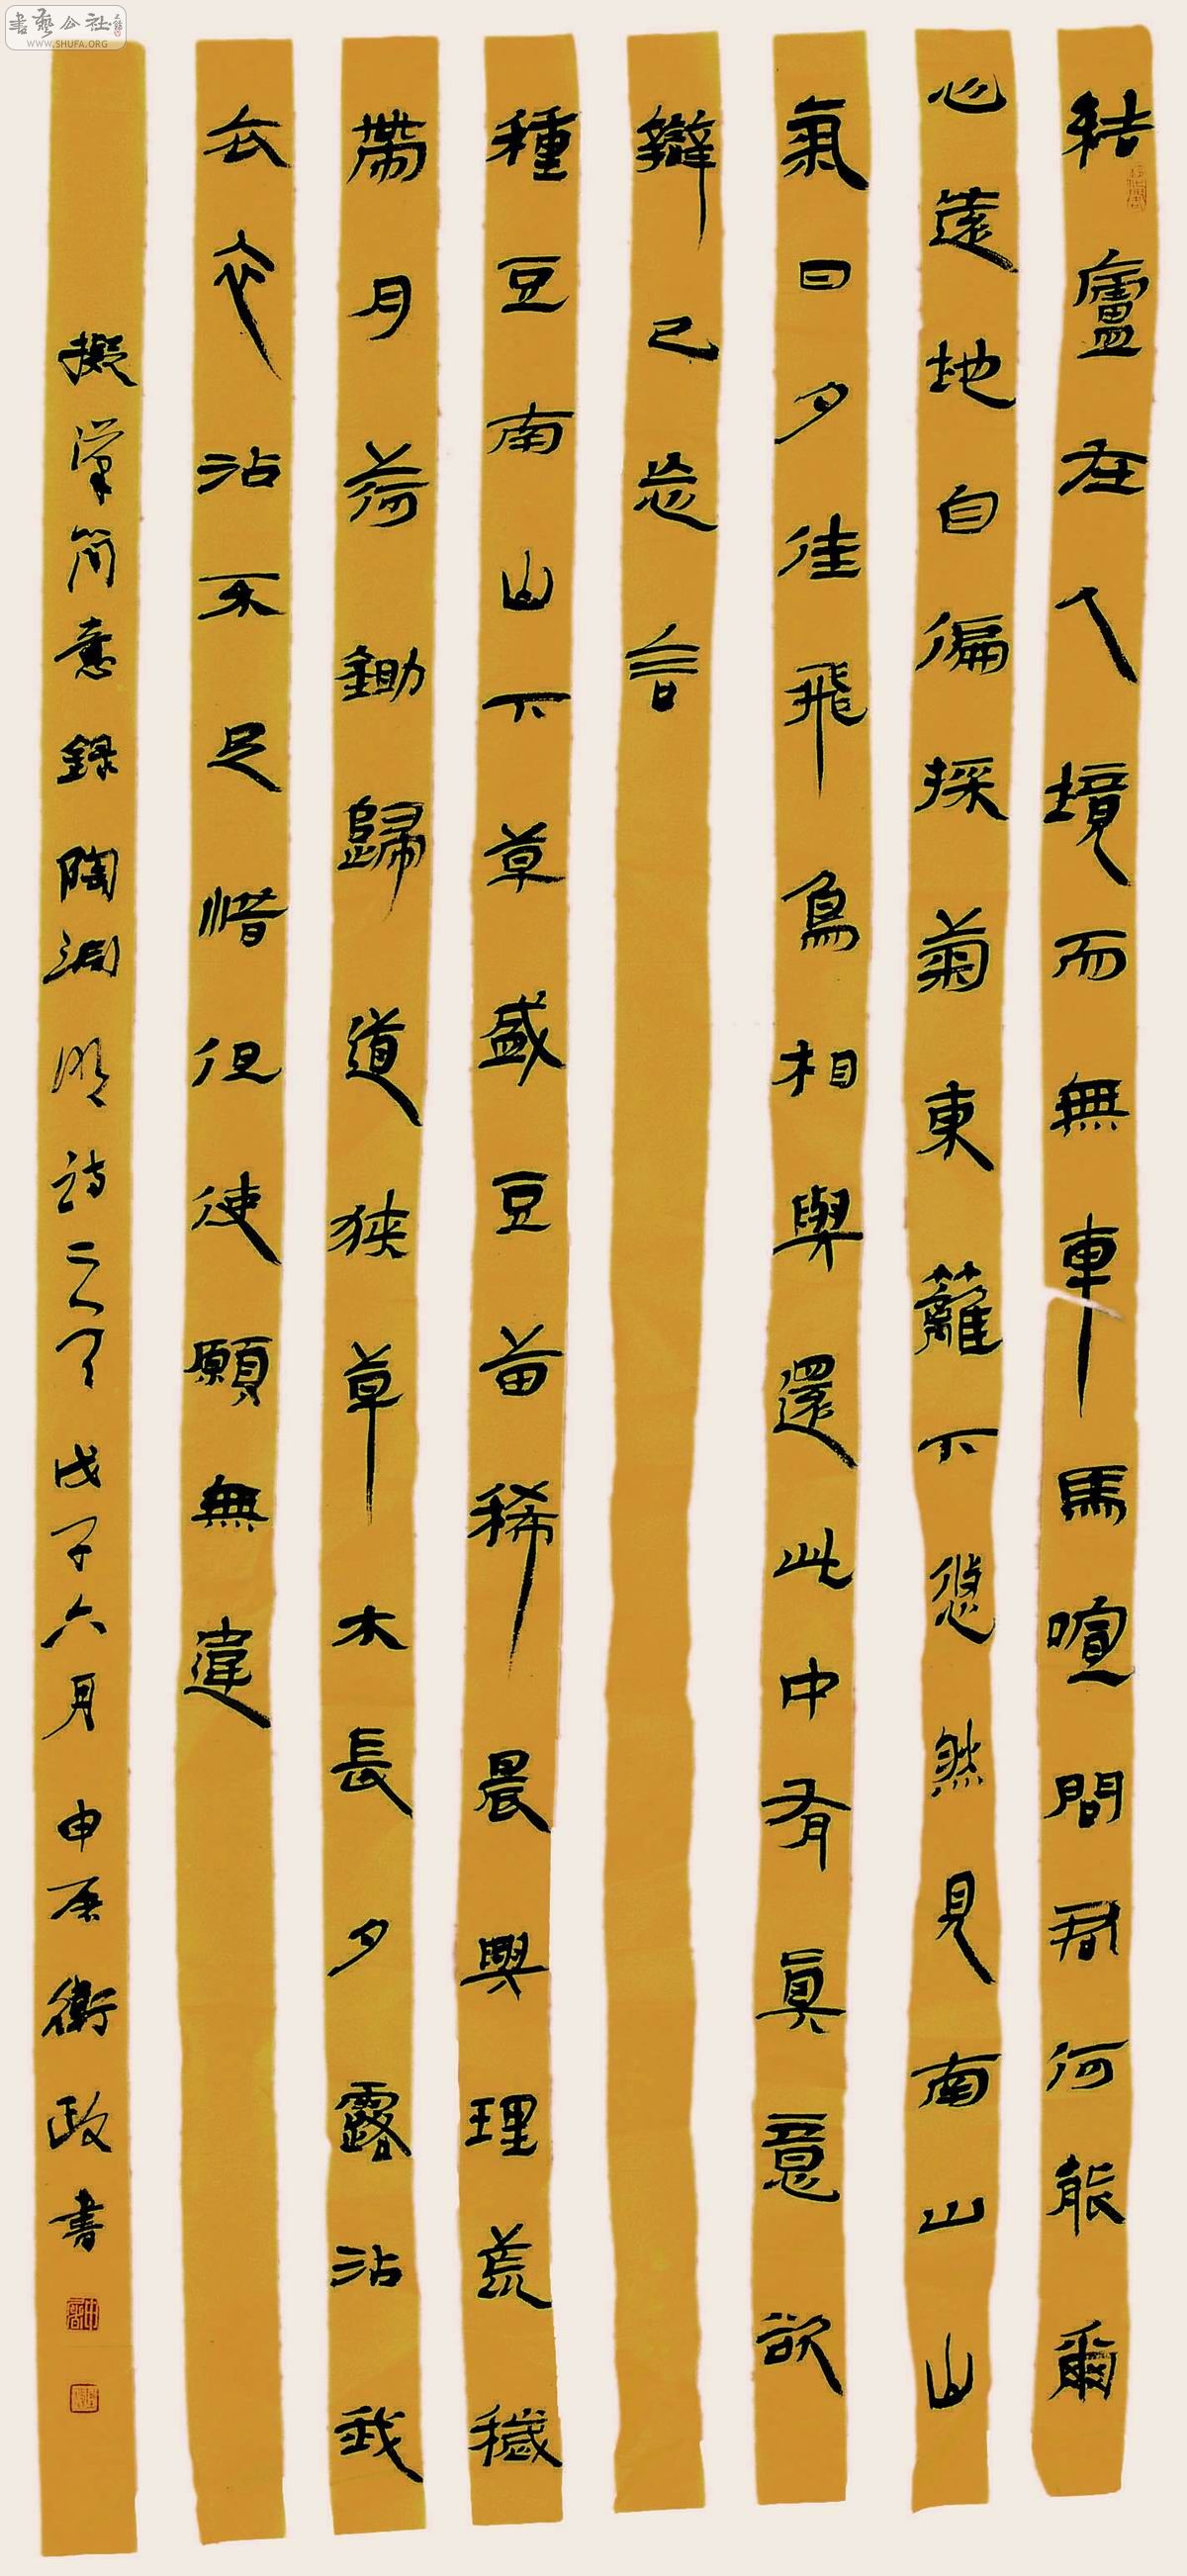 結廬在人境而無車馬喧問君何能爾
心遠地自偏採菊東籬下悠然見南山山
氣日夕佳飛鳥相與還此中有眞意欲
辯已忘言
種豆南山下草盛豆苗稀晨興理荒穢
帶月荷鋤歸道狹草木長夕露沾我
衣衣沾不足惜但使願無違
擬漢簡意錄陶淵明詩二戊子六月申衛政書
書藝公社
WWW.SHUFA.ORG